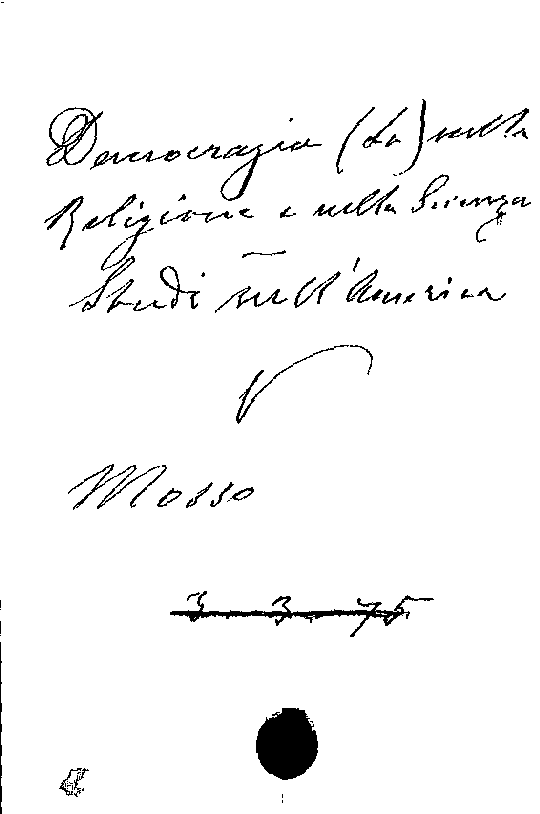 Democrazia (La) nella
Religione e nella Scienza
Studi sull'America
V
Mosso
3.3.75